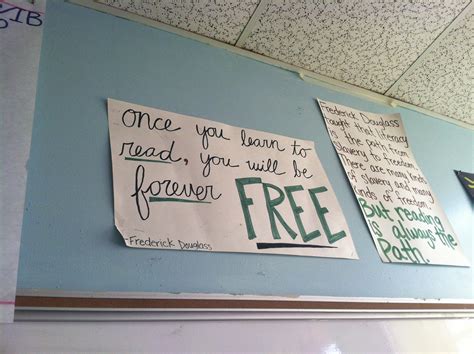 Once you learn to
read, you will be
forever FREE
-Frederick Douglass
Frederick Douglass
taught that literacy
is the path from
slavery to freedom.
There are many kinds
of slavery and many
kinds of freedom.
But reading
is always the
Path.